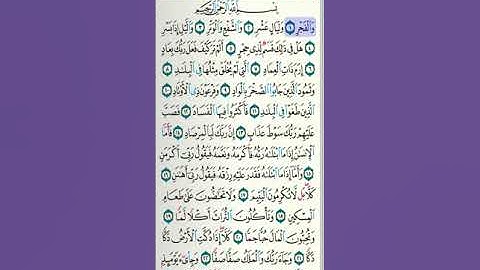 بِسْمِ اللَّهِ الرَّحْمَٰنِ الرَّحِيمِ
وَالْفَجْرِ ١ وَلَيَالٍ عَشْرٍ ٢ وَالشَّفْعِ وَالْوَتْرِ ٣ وَاللَّيْلِ إِذَا يَسْرِ
٤ هَلْ فِي ذَٰلِكَ قَسَمٌ لِّذِي حِجْرٍ ٥ أَلَمْ تَرَ كَيْفَ فَعَلَ رَبُّكَ بِعَادٍ
٦ إِرَمَ ذَاتِ الْعِمَادِ ٧ الَّتِي لَمْ يُخْلَقْ مِثْلُهَا فِي الْبِلَادِ ٨
وَثَمُودَ الَّذِينَ جَابُوا الصَّخْرَ بِالْوَادِ ٩ وَفِرْعَوْنَ ذِي الْأَوْتَادِ ١٠
الَّذِينَ طَغَوْا فِي الْبِلَادِ ١١ فَأَكْثَرُوا فِيهَا الْفَسَادَ ١٢ فَصَبَّ
عَلَيْهِمْ رَبُّكَ سَوْطَ عَذَابٍ ١٣ إِنَّ رَبَّكَ لَبِالْمِرْصَادِ ١٤ فَأَمَّا
الْإِنسَانُ إِذَا مَا ابْتَلَاهُ رَبُّهُ فَأَكْرَمَهُ وَنَعَّمَهُ فَيَقُولُ رَبِّي أَكْرَمَنِ
١٥ وَأَمَّا إِذَا مَا ابْتَلَاهُ فَقَدَرَ عَلَيْهِ رِزْقَهُ فَيَقُولُ رَبِّي أَهَانَنِ ١٦
كَلَّا بَل لَّا تُكْرِمُونَ الْيَتِيمَ ١٧ وَلَا تَحَاضُّونَ عَلَىٰ طَعَامِ
الْمِسْكِينِ ١٨ وَتَأْكُلُونَ التُّرَاثَ أَكْلًا لَّمًّا ١٩
وَتُحِبُّونَ الْمَالَ حُبًّا جَمًّا ٢٠ كَلَّا إِذَا دُكَّتِ الْأَرْضُ دَكًّا
دَكًّا ٢١ وَجَاءَ رَبُّكَ وَالْمَلَكُ صَفًّا صَفًّا ٢٢ وَجِيءَ يَوْمَئِذٍ